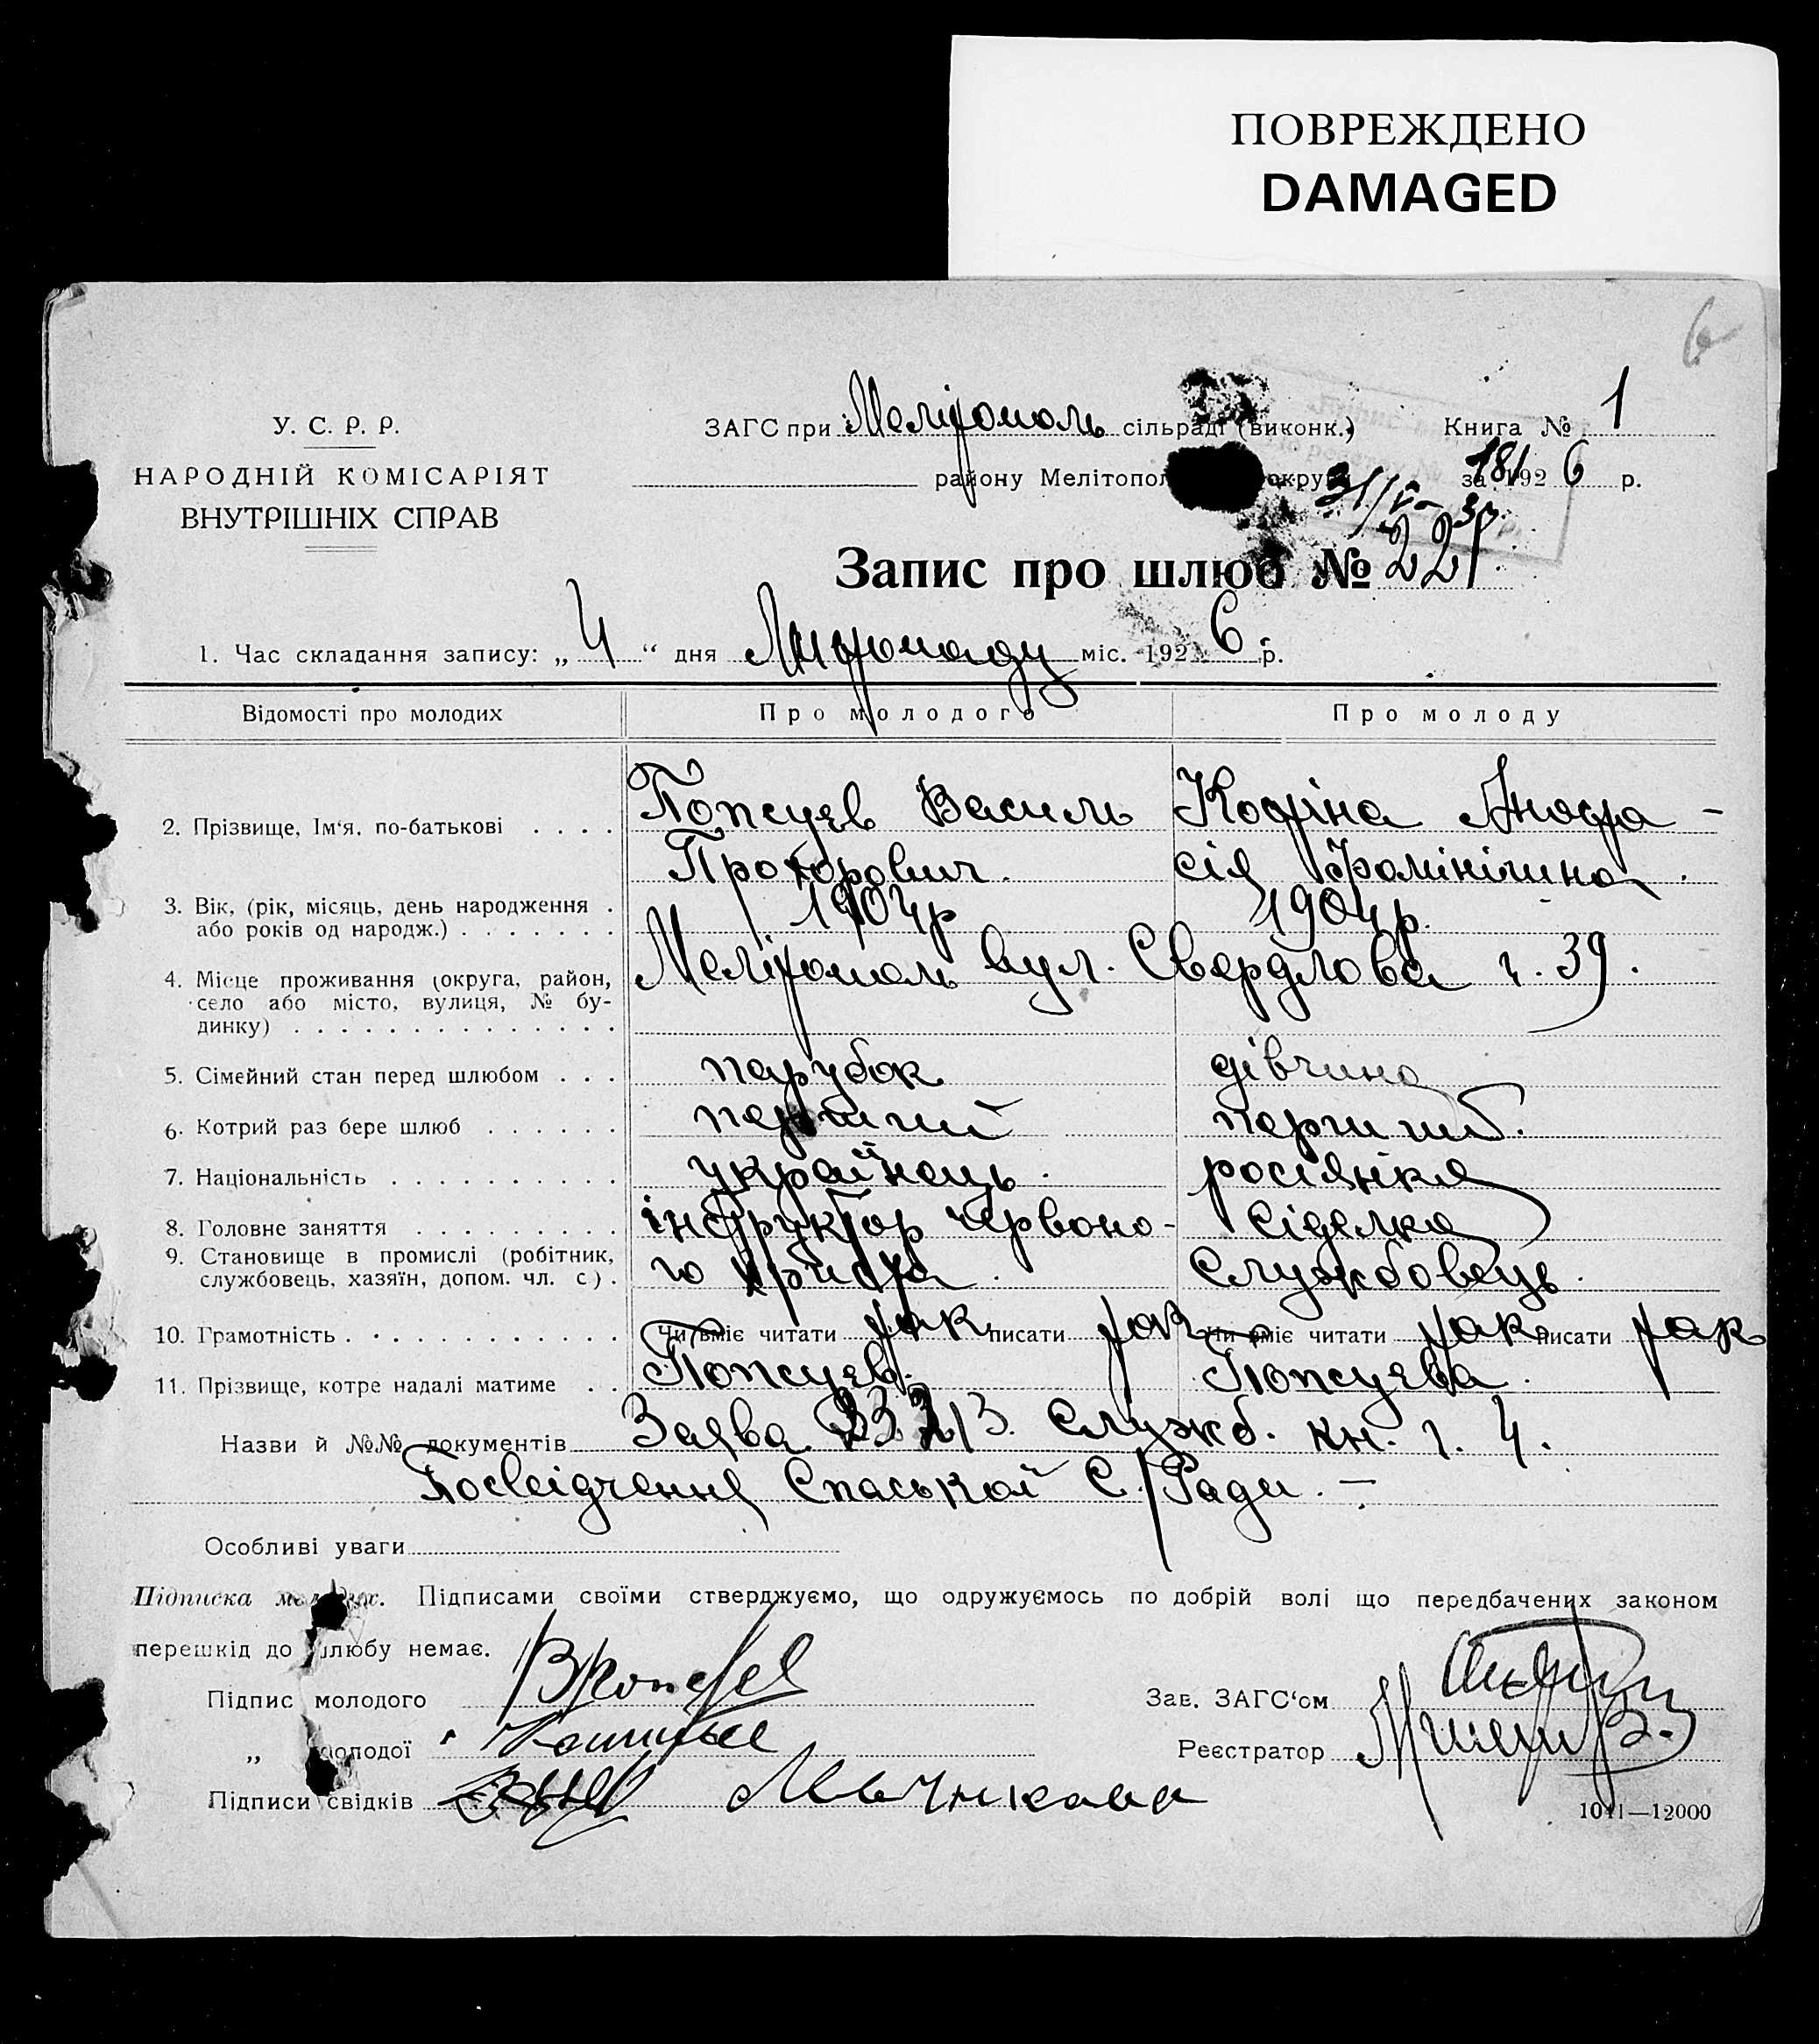 ПОВРЕЖДЕНО
DAMAGED
6
У. С. Р. Р.
НАРОДНІЙ КОМІСАРІЯТ
ВНУТРІШНІХ СПРАВ
ЗАГС при Мелітополь сільраді (виконк.) Книга № 1
району Мелітопол округи за 1926 р.
181
31/V-37
Запис про шлюб № 221
1. Час складання запису: „ 4 “ дня Листопаду міс. 1926 р.
Відомості про молодих Про молодого Про молоду
2. Прізвище, Ім'я, по-батькові . . . . Попсуєв Василь Прохорович. Костіна Анастасія
3. Вік, (рік, місяць, день народження . або років од народж.) . . . . . . . 1904р 1904р.
4. Місце проживання (округа, район, село або місто, вулиця, № будинку) . . . . . . . . . . . . . . Мелітополь вул. Свердлова ч. 39.
5. Сімейний стан перед шлюбом . . . парубок дівчина
6. Котрий раз бере шлюб . . . . . . перший перший.
7. Національність . . . . . . . . . . українець. росіянка
8. Головне заняття . . . . . . . . . інструктор Червоно- сіделка
9. Становище в промислі (робітник, службовець, хазяїн, допом. чл. с.) . го Христа. службовець.
10. Грамотність . . . . . . . . . . . . Чи вміє читати так писати так Чи вміє читати так писати так
11. Прізвище, котре надалі матиме . . Попсуєв. Попсуєва.
Назви й №№ документів Заява Служб. кн. ч. 4.
Посвідчення Спаської С/Ради. –
Особливі уваги
Підписка молодих. Підписами своїми стверджуємо, що одружуємось по добрій волі що передбачених законом
перешкід до шлюбу немає.
Підпис молодого Зав. ЗАГС'ом
„ молодої Реєстратор
Підписи свідків
1041—12000